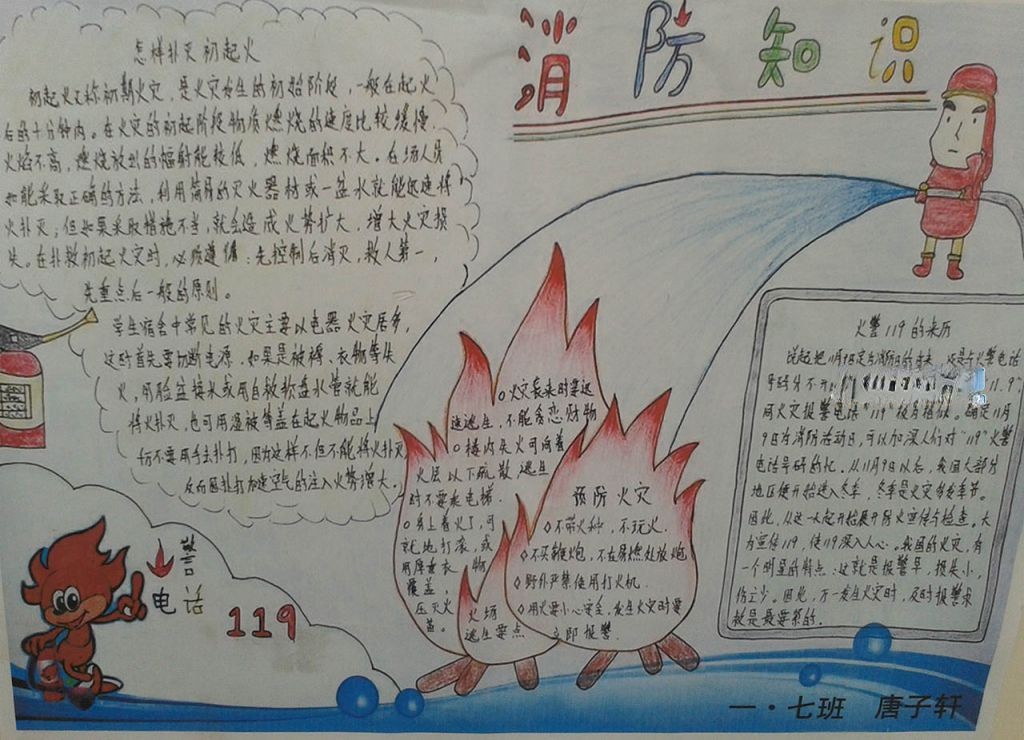 消防知识
怎样扑灭初起火
初起火又称初期火灾，是火灾发生的初始阶段，一般在起火
后的十分钟内。在火灾的初起阶段物质燃烧的速度比较缓慢，
火焰不高，燃烧放出的辐射能较低，燃烧面积不大。在场人员
如能采取正确的方法，利用简易的灭火器材或一盆水就能迅速将
火扑灭；但如果采取措施不当，就会造成火势扩大，增大火灾损
失。在扑救初起火灾时，必须遵循：先控制后消灭，救人第一，
先重点后一般的原则。
学生宿舍中常见的火灾主要以电器火灾居多，
这时首先要切断电源，如果是被褥、衣物等失
火，用脸盆接水或用自救软盘水管就能
将火扑灭，也可用湿被等盖在起火物品上
切不要用手去扑打，因为这样不但不能将火扑灭
反而因扑打加速空气的注入火势增大。
火警
电话
119
火灾袭来时要迅
速逃生，不能贪恋财物
楼内失火可向着
火层以下疏散逃生
时不要乘电梯.
身上着火了，可
就地打滚，或
用厚重衣物
覆盖，
压灭火
苗。
火场
逃生要点
预防火灾
不带火种，不玩火.
不买鞭炮，不在易燃处放炮
野外严禁使用打火机.
用火要小心安全，发生火灾时要
立即报警.
火警119的来历
说起把11月9日定为消防日的由来，还是与火警电话
号码分不开
11.9"
同火灾报警电话"119"
确定11月
9日为消防活动日，可以加深人们对"119"火警
电话号码的忆。从11月9日以后，我国大部分
地区便开始进入冬季，冬季是火灾多发季节。
因此，从这一天起开始展开防火宣传与检查。大
力宣传119，使119深入人心。我国的火灾，有
一个明显的特点：这就是报警早，损失小，
伤亡少。因此，万一发生火灾时，及时报警求
救是最要紧的.
一·七班 唐子轩